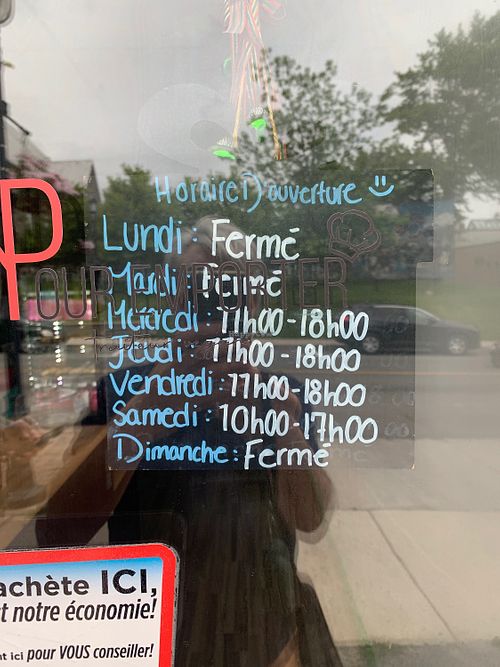 Horaire D'ouverture
Lundi : Fermé
POUR EMPORTER
Mardi : Fermé
Mercredi : 11h00 - 18h00
Jeudi : 11h00 - 18h00
Vendredi : 11h00 - 18h00
Samedi : 10h00 - 17h00
Dimanche : Fermé
achète ICI,
t notre économie!
t ici pour VOUS conseiller!